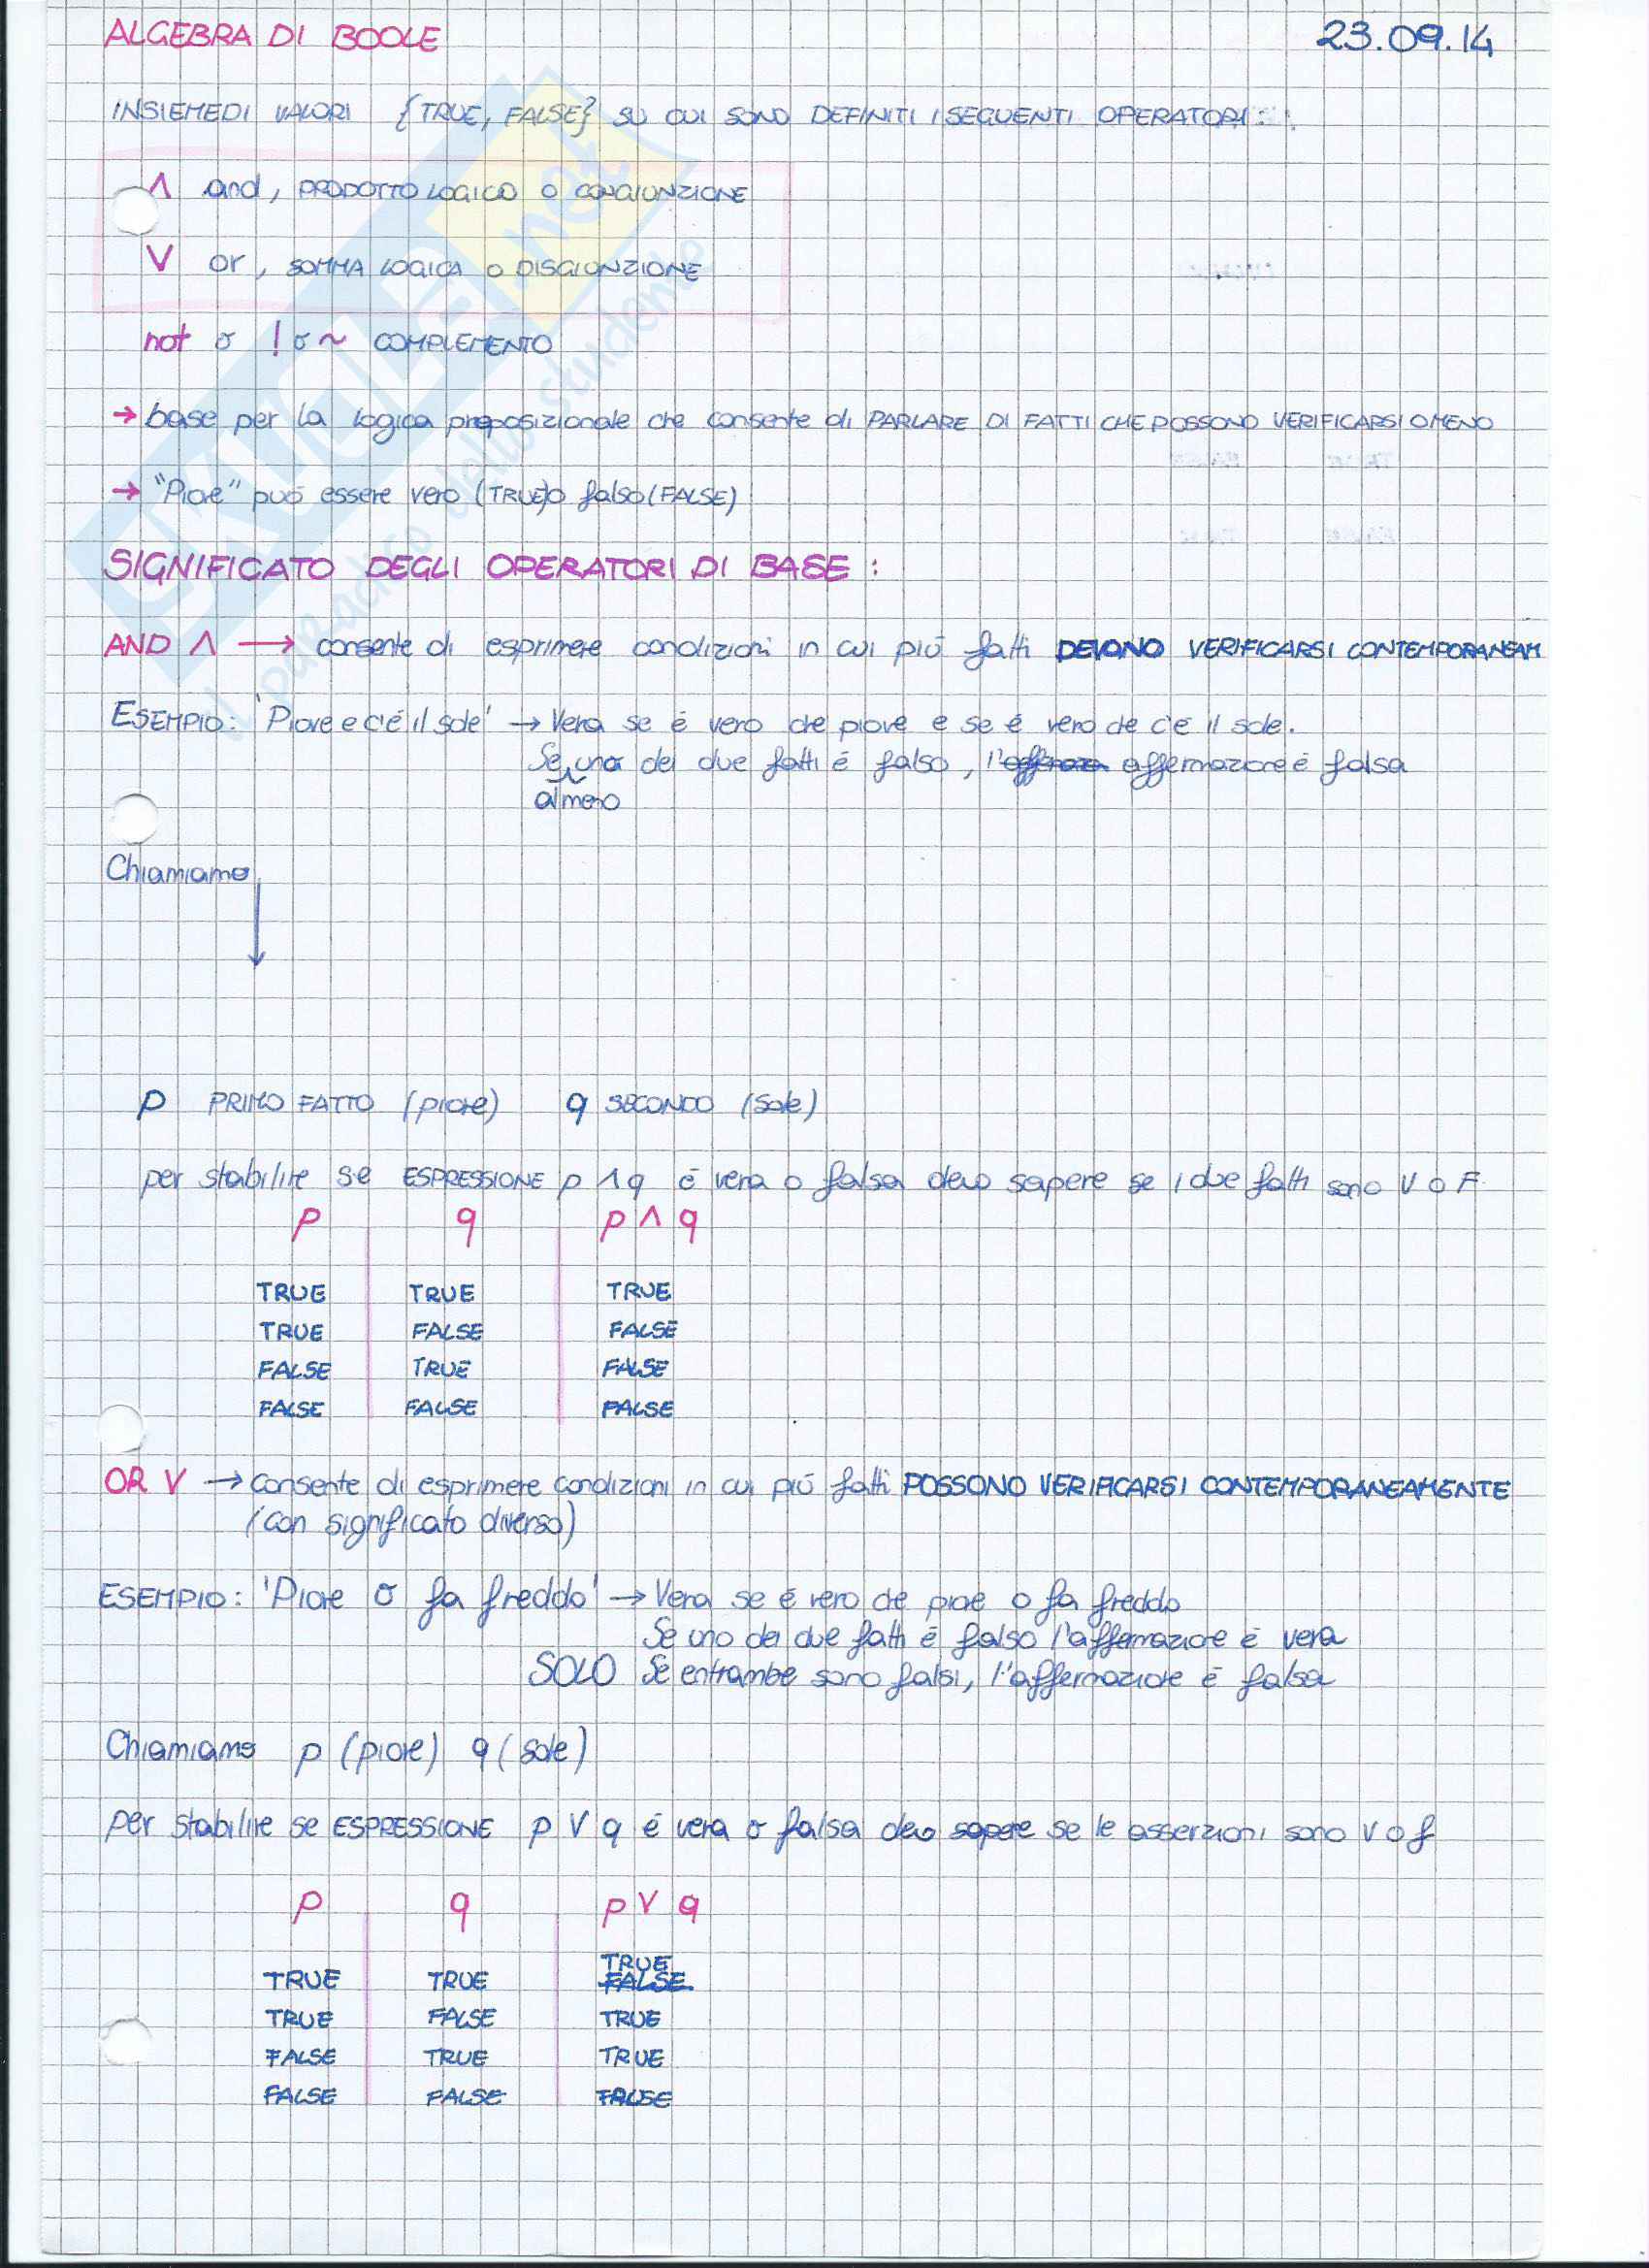 ALGEBRA DI BOOLE 23.09.14
INSIEME DI VALORI {TRUE, FALSE} SU CUI SONO DEFINITI I SEGUENTI OPERATORI:
Λ and, PRODOTTO LOGICO O CONGIUNZIONE
V or, SOMMA LOGICA O DISGIUNZIONE
not o ! o ~ COMPLEMENTO
→ base per la logica proposizionale che consente di PARLARE DI FATTI CHE POSSONO VERIFICARSI O MENO
→ "Piove" può essere vero (TRUE) o falso (FALSE)
SIGNIFICATO DEGLI OPERATORI DI BASE:
AND Λ → consente di esprimere condizioni in cui più fatti DEVONO VERIFICARSI CONTEMPORANEAM
ESEMPIO: 'Piove e c'é il sole' → Vera se é vero che piove e se é vero che c'é il sole.
Se uno dei due fatti é falso, l' affermazione é falsa
almeno
Chiamiamo
p PRIMO FATTO (piove) q SECONDO (sole)
per stabilire se ESPRESSIONE p Λ q é vera o falsa devo sapere se i due fatti sono V o F
p q p Λ q
TRUE TRUE TRUE
TRUE FALSE FALSE
FALSE TRUE FALSE
FALSE FALSE FALSE
OR V → Consente di esprimere condizioni in cui più fatti POSSONO VERIFICARSI CONTEMPORANEAMENTE
(con significato diverso)
ESEMPIO: 'Piove o fa freddo' → Vera se é vero che piove o fa freddo
Se uno dei due fatti é falso l'affermazione é vera
SOLO Se entrambe sono falsi, l'affermazione é falsa
Chiamiamo p (piove) q (sole)
per stabilire se ESPRESSIONE p V q é vera o falsa devo sapere se le asserzioni sono V o f
p q p V q
TRUE
TRUE TRUE FALSE
TRUE FALSE TRUE
FALSE TRUE TRUE
FALSE FALSE FALSE